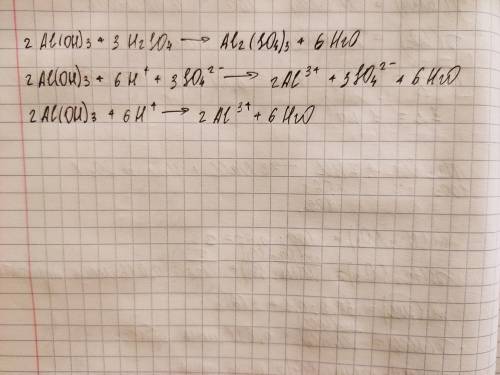 2 Al(OH)3 + 3 H2SO4 → Al2(SO4)3 + 6 H2O
2 Al(OH)3 + 6 H⁺ + 3 SO4²⁻ → 2 Al³⁺ + 3 SO4²⁻ + 6 H2O
2 Al(OH)3 + 6 H⁺ → 2 Al³⁺ + 6 H2O